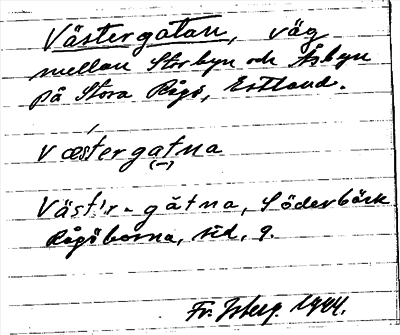 Västergatan, väg
mellan Storbyn och Åsbyn
på Stora Rågö, Estland.
væstergatna
(-)
Väst!r-gătna, Söderbäck
Rågöborna, sid, 9.
Fr. Isberg 1944.